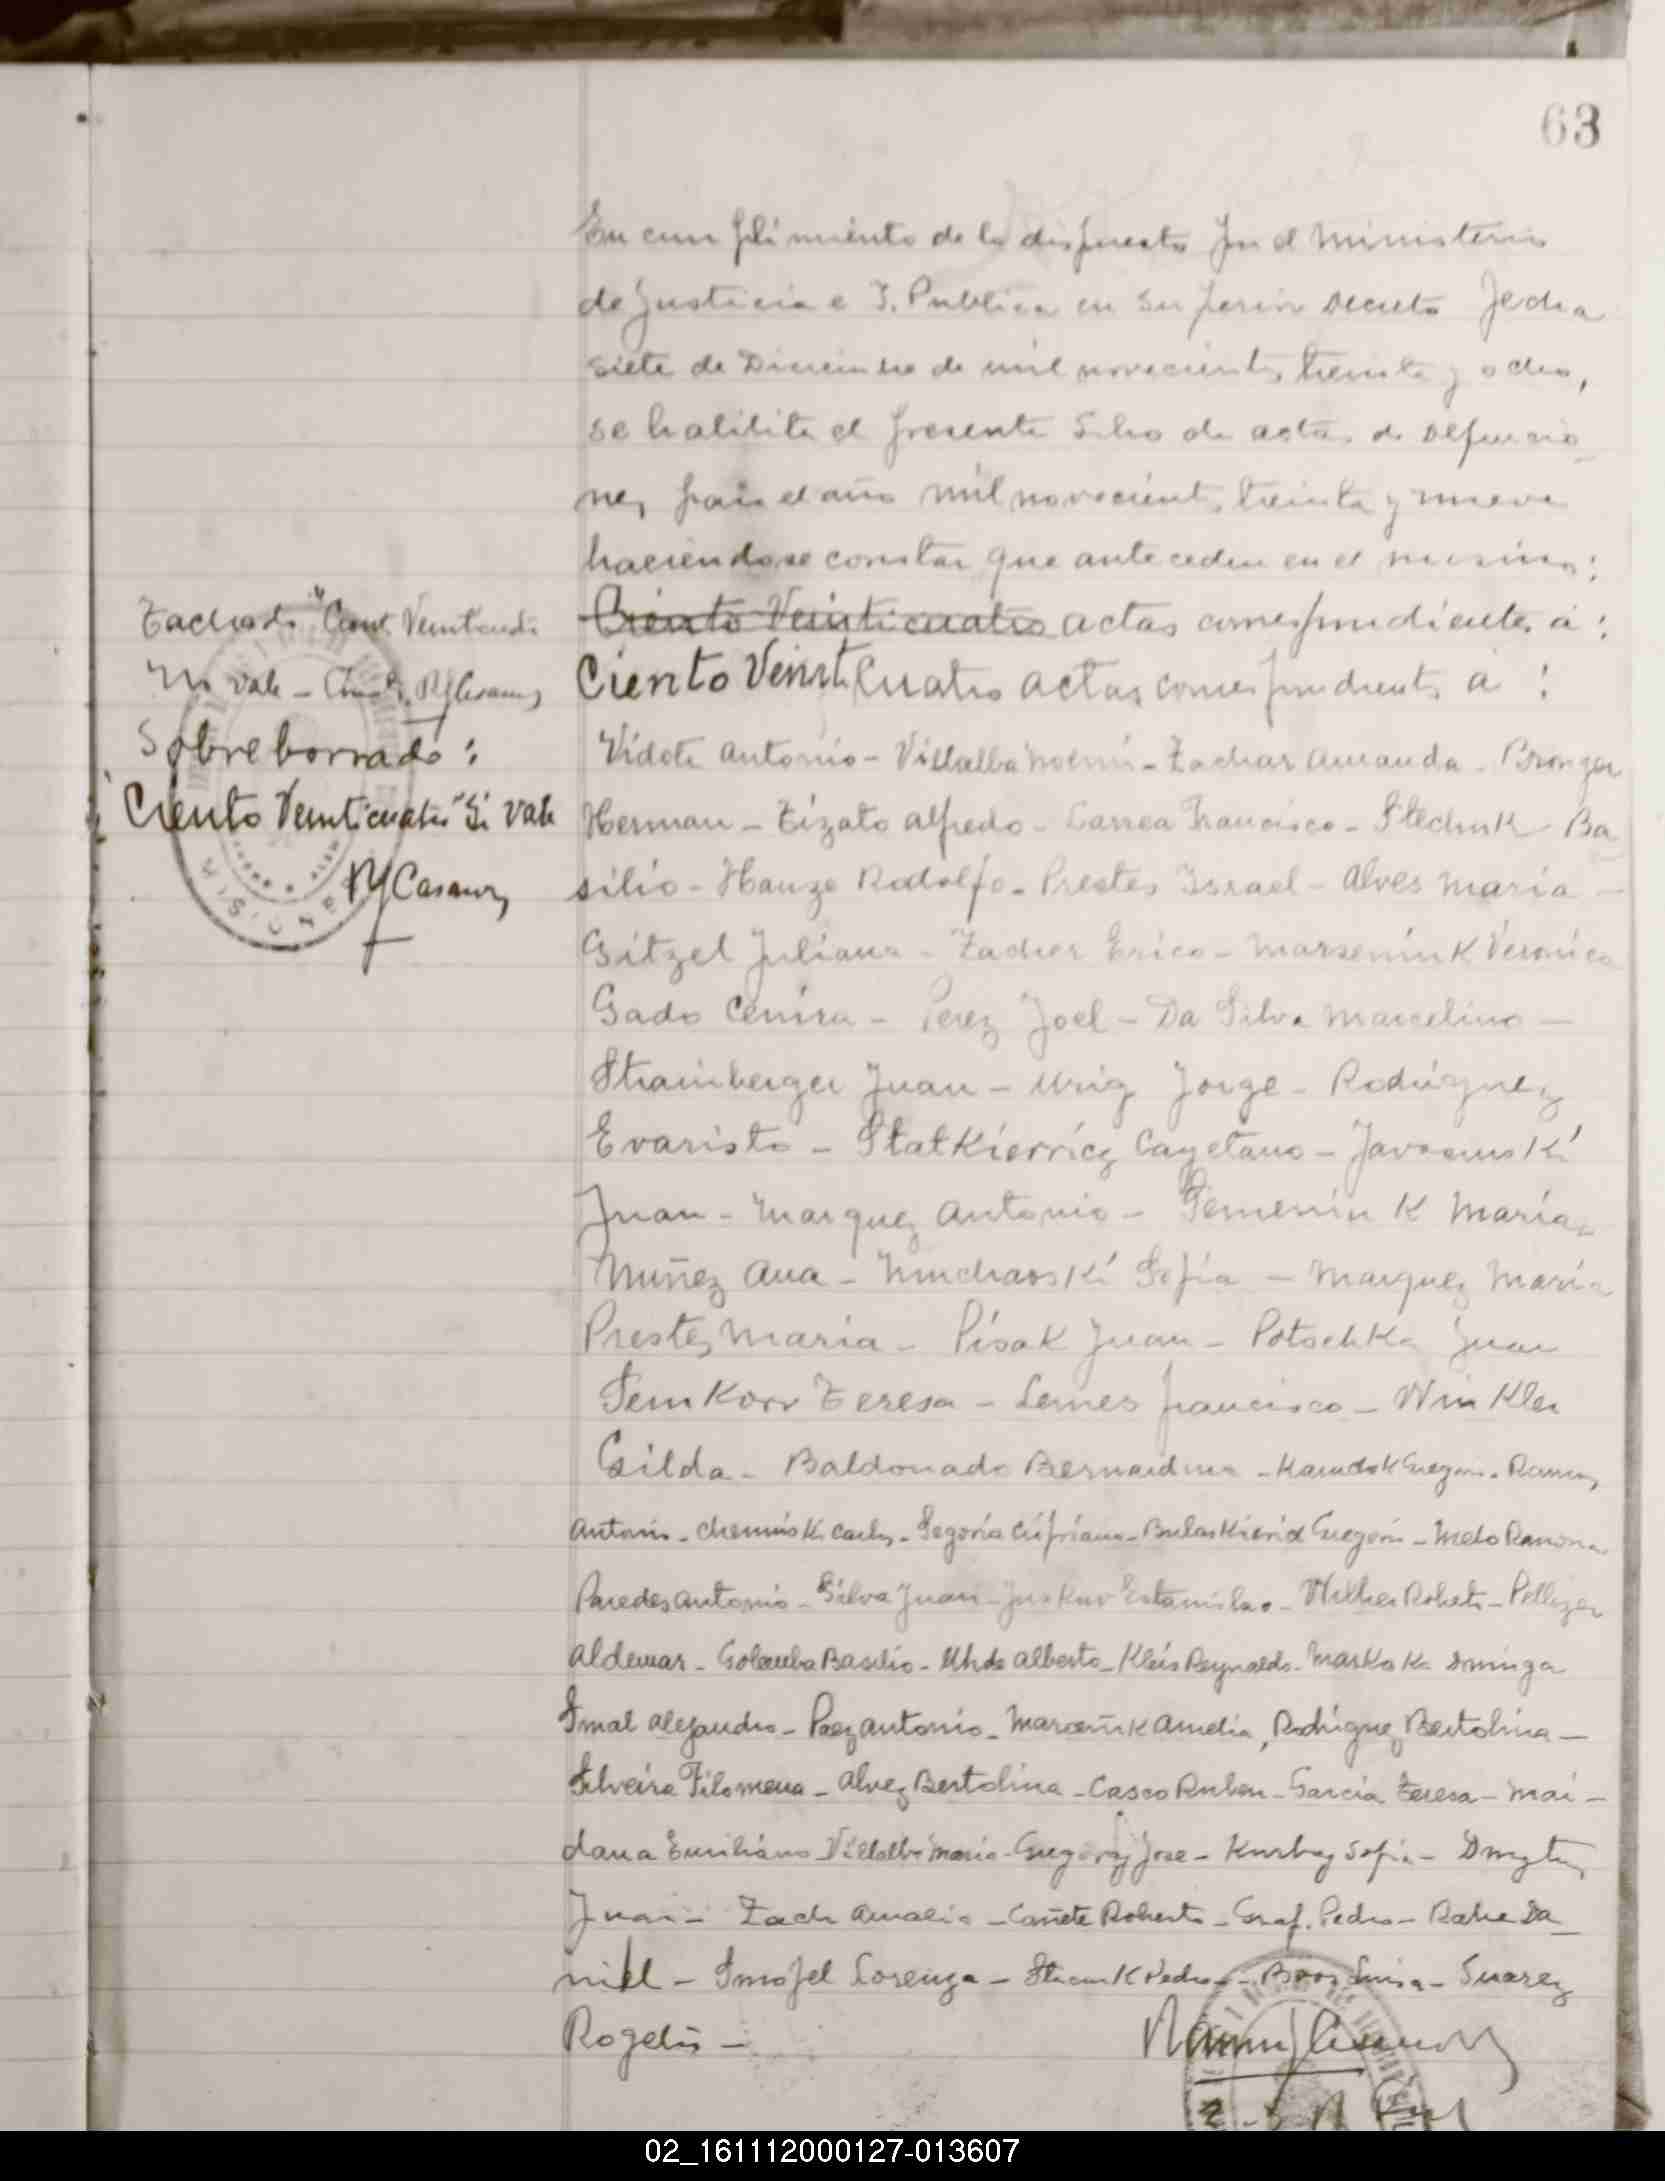 63
En cumplimiento de lo dispuesto por el Ministerio
de Justicia e I. Publica en superior Decreto fecha
siete de Diciembre de mil novecientos treinta y ocho,
se habilita el presente Libro de actas de Defuncio_
nes para el año mil novecientos treinta y nueve
haciendose constar que anteceden en el mismo:
Ciento Veinticuatro actas correspondientes a:
Ciento Veinticuatro actas correspondientes a:
Vidote Antonio - Villalba Noemi - Zachar Amanda - Bronger
Herman - Tizato Alfredo - Correa Francisco - Stechuk Ba
silio - Hauze Rodolfo - Prestes Israel - Alves Maria -
Gitzel Juliana - Zacher Erico - Marseniuk Veronica
Gado Cenira - Perez Joel - Da Silva Marcelino -
Strainberger Juan - Urig Jorge - Rodriguez
Evaristo - Statkievicz Cayetano -
Juan - Marquez Antonio - Semeniuk Maria
Nuñez Ana - Sofia - Marquez Maria
Prestes Maria - Pisak Juan - Potschka Juan
Semkow Teresa - Lemes Francisco - Winkler
Gilda - Baldonado Bernardina - Ramos
Antonio - Carlos - Segovia Cipriano - Gregorio - Melo Ramona
Paredes Antonio - Silva Juan - Estanislao - Roberto - Pellizer
Aldemar - Golemba Basilio - Uhde Alberto - Kleis Reynaldo - Markoka Dminga
Smal Alejandro - Paez Antonio - Marceñuk Amelia, Rodriguez Bertolina -
Silveira Filomena - Alvez Bertolina - Casco Ruben - Garcia Teresa - Mai -
dana Emiliano - Villalba Maria - Jose - Sofia -
Juan - Zach Amalia - Cañete Roberto - Graf. Pedro - Rahe Da_
niel - Smofel Lorenza - Pedro - Boos Luisa - Suarez
Rogelio -
Tachado "Ciento Veinticuatro
No vale -
Sobreborrado:
"Ciento Veinticuatro" Si Vale
02_161112000127-013607